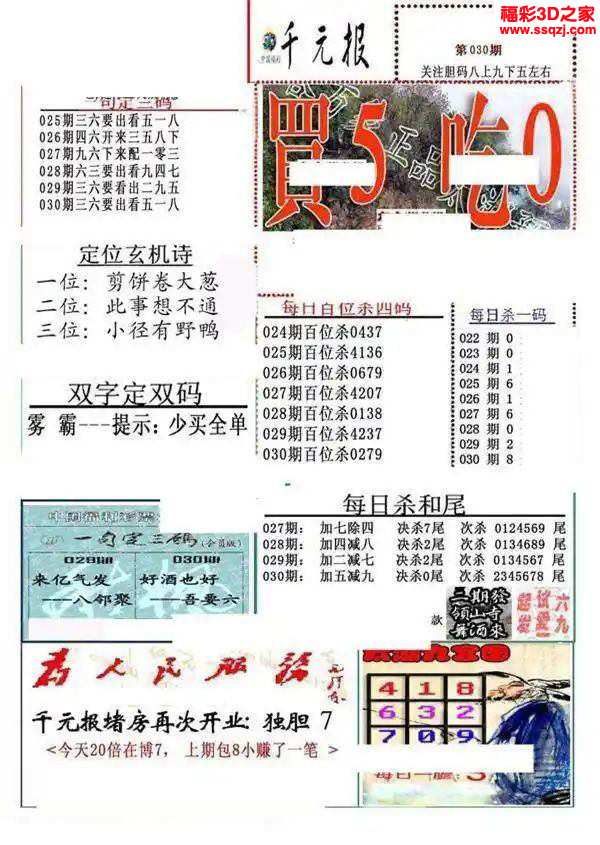 福彩3D之家
www.ssqzj.com
千元报
第030期
关注胆码八上九下五左右
句定三码
025期三六要出看五一八
026期四六开来三五八下
027期九六下来配一零三
028期六三要出看九四七
029期三六要出看二九五
030期三六要出看五一八
買5吃0
正品
定位玄机诗
一位：剪饼卷大葱
二位：此事想不通
三位：小径有野鸭
双字定双码
雾 霸---提示：少买全单
每日百位杀四码
024期百位杀0437
025期百位杀4136
026期百位杀0679
027期百位杀4207
028期百位杀0138
029期百位杀4237
030期百位杀0279
每日杀一码
022 期 0
023 期 0
024 期 1
025 期 6
026 期 1
027 期 6
028 期 0
029 期 2
030 期 8
每日杀和尾
027期： 加七除四 决杀7尾 次杀 0124569 尾
028期： 加四减八 决杀2尾 次杀 0134689 尾
029期： 加二减七 决杀2尾 次杀 0134567 尾
030期： 加五减九 决杀0尾 次杀 2345678 尾
中国福利彩票
一句定三码(会员版)
029期
来亿气发
——八邻聚
030期
好酒也好
——吾要六
款
二期发
领山寺
舞酒来
六九
为人民服务
千元报堵房再次开业：独胆 7
<今天20倍在博7， 上期包8小赚了一笔 >
4 1 8
6 3 2
7 0 9
每日一胆：3